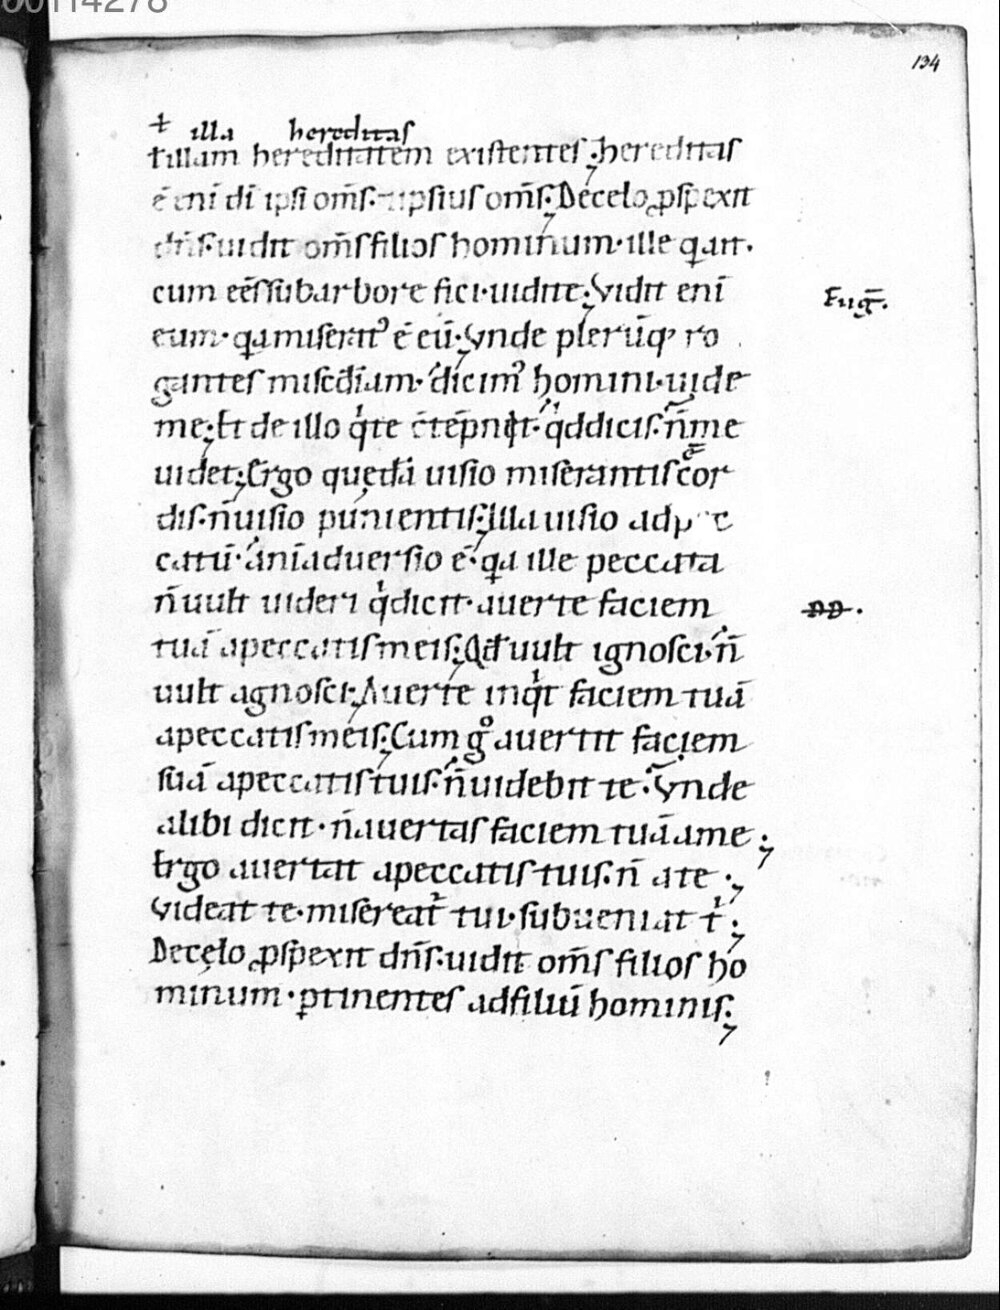 00114278
134
ł illa hereditas
ł illam hereditatem existentes ; hereditas
ē eni di ipsi om̄s · ipsius om̄s ; De celo ꝓspexit
dn̄s · uidit om̄s filios hominum · ille q̇ an ·
cum eēs sub arbore fici · uidit te ; Vidit enī
Eug̅ ·
eum · qa misertꝰ ē eū · Vnde plerūq; ro
gantes misc̄diam · dicimꝰ homini · uide
me ; Et de illo qͥ te c̄tēpnit · qͥd dicis · n̄ me
uidet ; Ergo quędā uisio miserantis ē cor
dis · n̄ uisio punientis ; Illa uisio ad pec
catū · animaduersio ē · qa ille peccata
n̄ uult uideri qͥ dicit · auerte faciem
DD ·
tuā a peccatis meis ; Qd̄ uult ignosci · n̄
uult agnosci ; Auerte inqͥt faciem tuā
a peccatis meis ; Cum gͦ auertit faciem
suā a peccatis tuis · n̄ uidebit te · Vnde
alibi dicit · n̄ auertas faciem tuā a me ;
Ergo auertat a peccatis tuis · n̄ a te ;
Videat te · misereat᷑ tui · subueniat tͥ ;
De cęlo ꝓspexit dn̄s · uidit om̄s filios ho
minum · ꝑtinentes ad filiū hominis ;